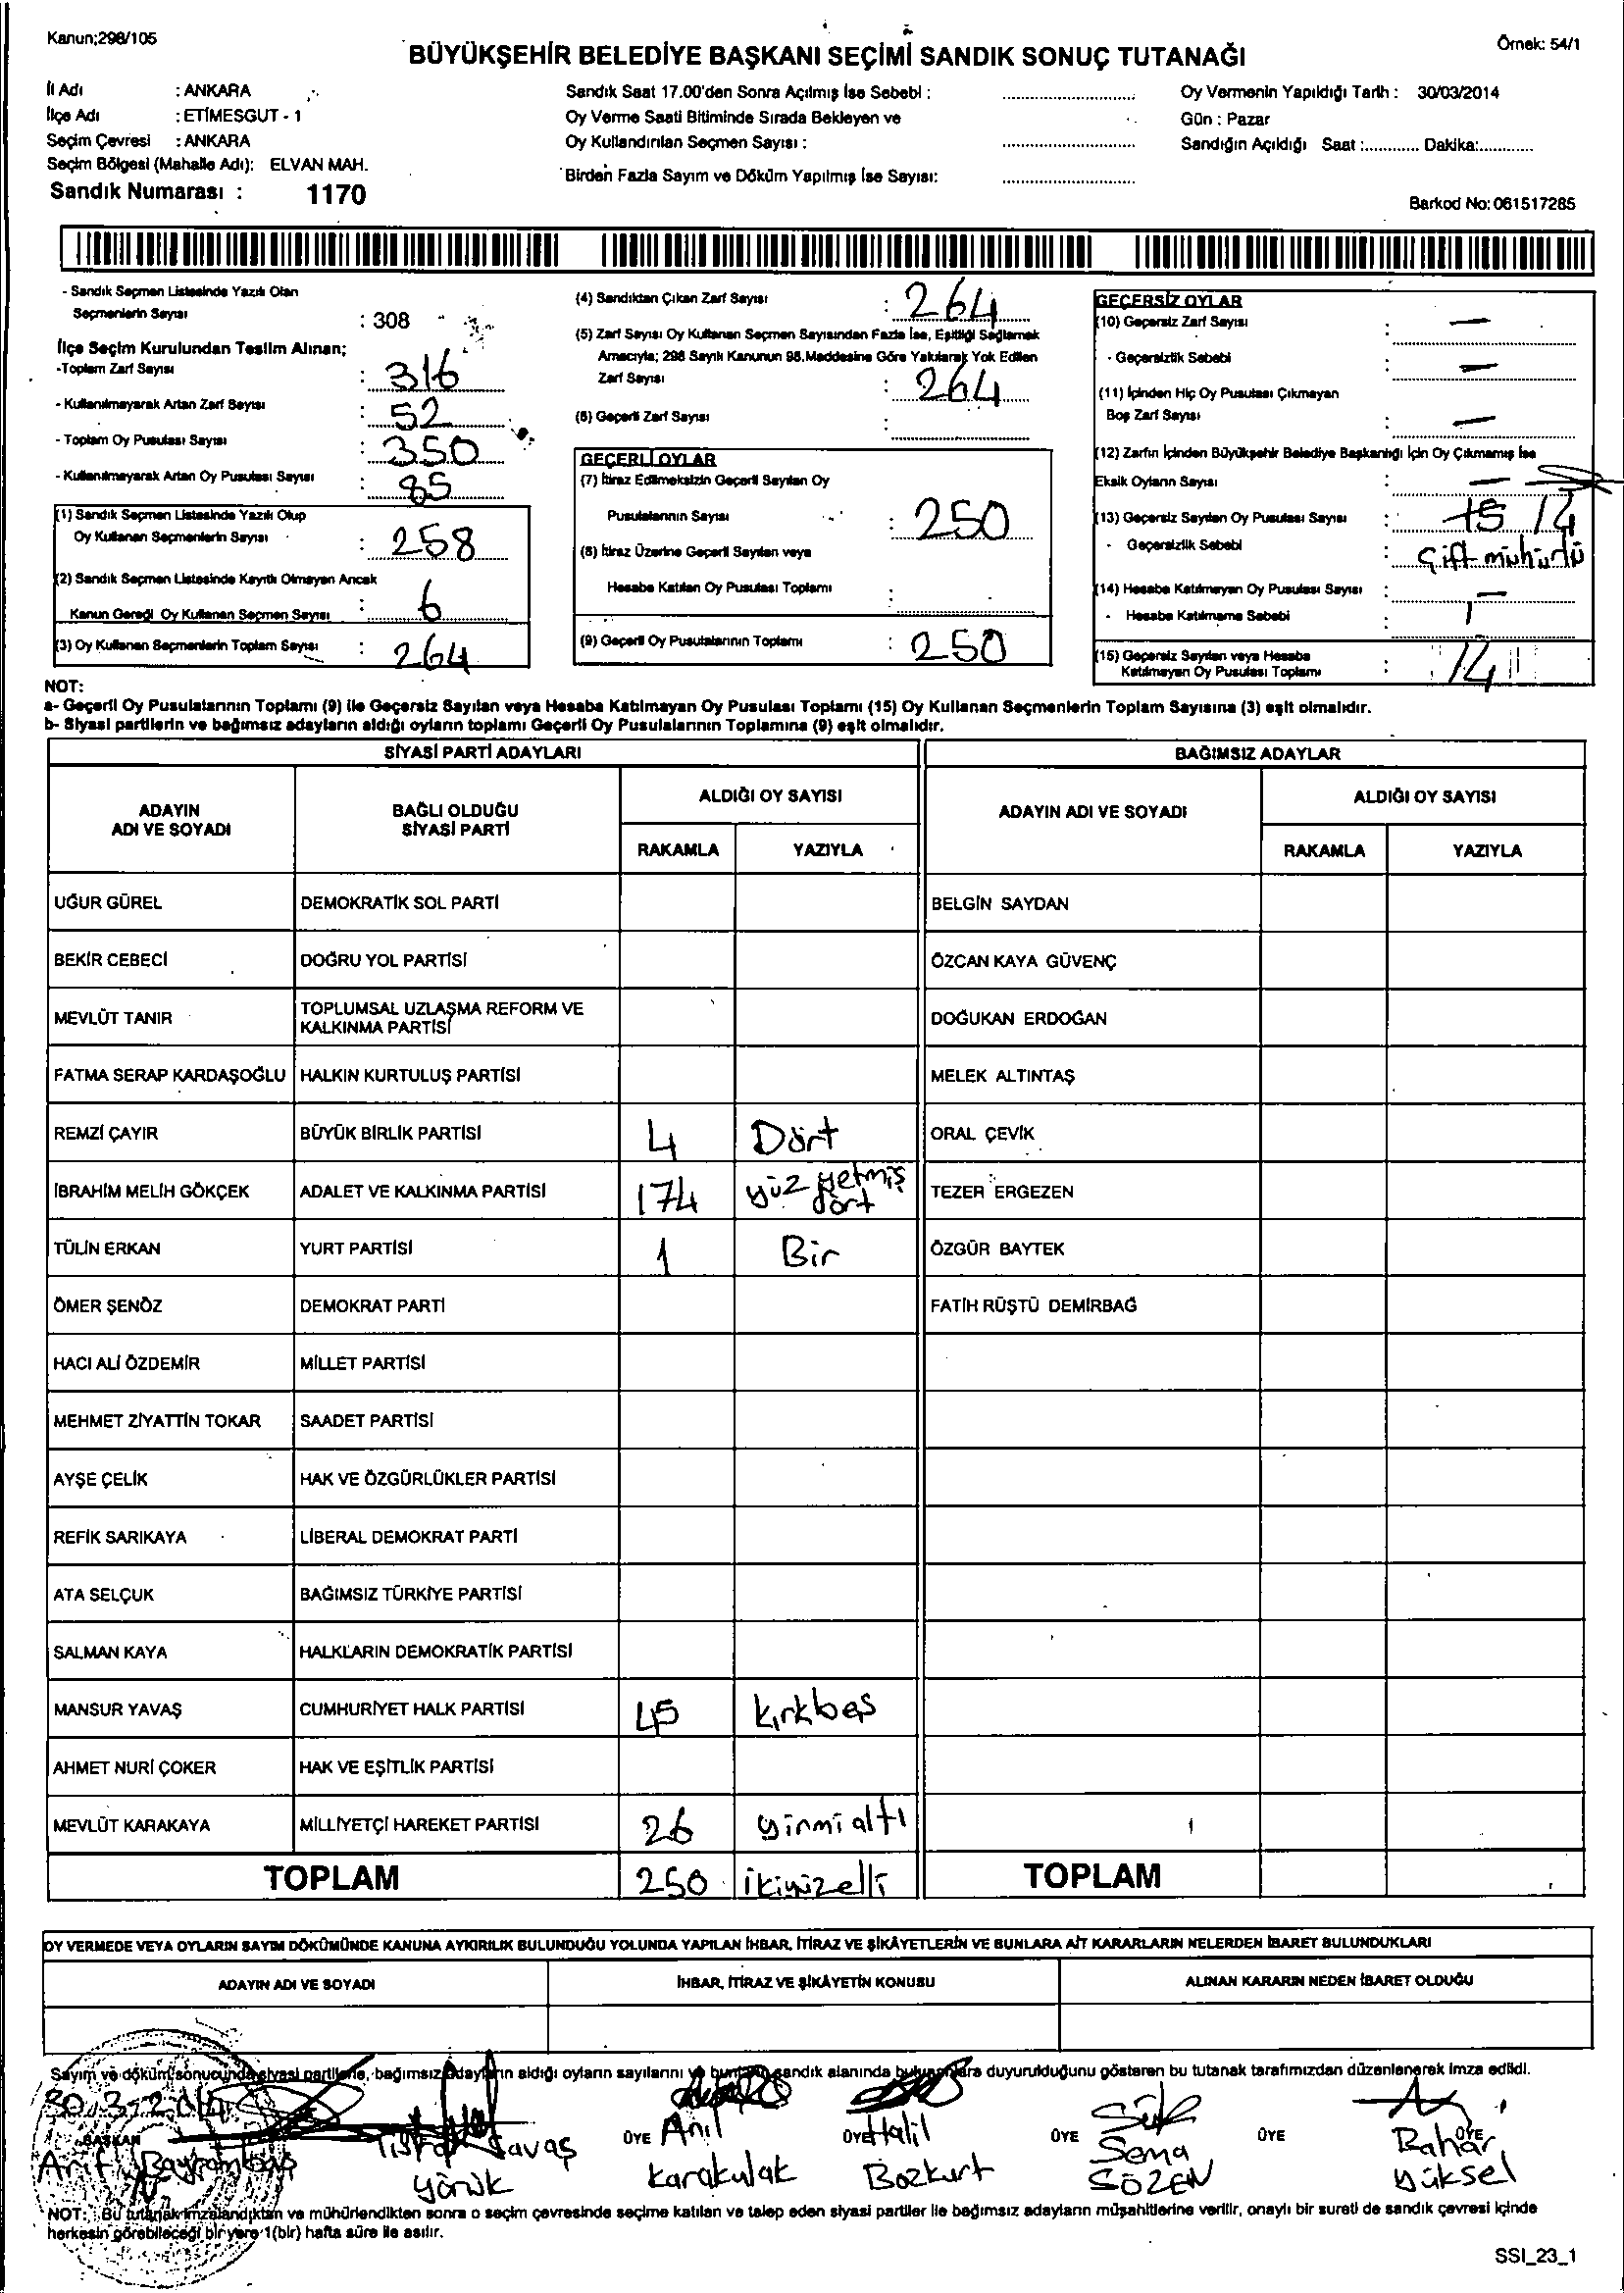 Kanun;298/105
Örnek: 54/1
BÜYÜKŞEHİR BELEDİYE BAŞKANI SEÇİMİ SANDIK SONUÇ TUTANAĞI
İl Adı : ANKARA
İlçe Adı : ETİMESGUT - 1
Seçim Çevresi : ANKARA
Seçim Bölgesi (Mahalle Adı): ELVAN MAH.
Sandık Numarası : 1170
Sandık Saat 17.00'den Sonra Açılmış İse Sebebi :
Oy Verme Saati Bitiminde Sırada Bekleyen ve
Oy Kullandırılan Seçmen Sayısı :
Birden Fazla Sayım ve Döküm Yapılmış İse Sayısı:
Oy Vermenin Yapıldığı Tarih : 30/03/2014
Gün : Pazar
Sandığın Açıldığı Saat :............ Dakika:............
Barkod No: 061517285
- Sandık Seçmen Listesinde Yazılı Olan
Seçmenlerin Sayısı : 308
İlçe Seçim Kurulundan Teslim Alınan;
-Toplam Zarf Sayısı : 316
- Kullanılmayarak Artan Zarf Sayısı : 52
- Toplam Oy Pusulası Sayısı : 350
- Kullanılmayarak Artan Oy Pusulası Sayısı : 85
(1) Sandık Seçmen Listesinde Yazılı Olup
Oy Kullanan Seçmenlerin Sayısı : 258
(2) Sandık Seçmen Listesinde Kayıtlı Olmayan Ancak
Kanun Gereği Oy Kullanan Seçmen Sayısı : 6
(3) Oy Kullanan Seçmenlerin Toplam Sayısı : 264
(4) Sandıktan Çıkan Zarf Sayısı : 264
(5) Zarf Sayısı Oy Kullanan Seçmen Sayısından Fazla İse, Eşitliği Sağlamak
Amacıyla; 298 Sayılı Kanunun 98.Maddesine Göre Yakılarak Yok Edilen
Zarf Sayısı : 264
(6) Geçerli Zarf Sayısı :
GEÇERLİ OYLAR
(7) İtiraz Edilmeksizin Geçerli Sayılan Oy
Pusulalarının Sayısı : 250
(8) İtiraz Üzerine Geçerli Sayılan veya
Hesaba Katılan Oy Pusulası Toplamı :
(9) Geçerli Oy Pusulalarının Toplamı : 250
GEÇERSİZ OYLAR
(10) Geçersiz Zarf Sayısı : —
- Geçersizlik Sebebi : —
(11) İçinden Hiç Oy Pusulası Çıkmayan
Boş Zarf Sayısı : —
(12) Zarfın İçinden Büyükşehir Belediye Başkanlığı İçin Oy Çıkmamış İse
Eksik Oyların Sayısı : —
(13) Geçersiz Sayılan Oy Pusulası Sayısı : 15 14
- Geçersizlik Sebebi : Çift mühürlü
(14) Hesaba Katılmayan Oy Pusulası Sayısı : —
- Hesaba Katılmama Sebebi :
(15) Geçersiz Sayılan veya Hesaba
Katılmayan Oy Pusulası Toplamı : 14
NOT:
a- Geçerli Oy Pusulalarının Toplamı (9) ile Geçersiz Sayılan veya Hesaba Katılmayan Oy Pusulası Toplamı (15) Oy Kullanan Seçmenlerin Toplam Sayısına (3) eşit olmalıdır.
b- Siyasi partilerin ve bağımsız adayların aldığı oyların toplamı Geçerli Oy Pusulalarının Toplamına (9) eşit olmalıdır.
SİYASİ PARTİ ADAYLARI
BAĞIMSIZ ADAYLAR
ADAYIN
ADI VE SOYADI
BAĞLI OLDUĞU
SİYASİ PARTİ
ALDIĞI OY SAYISI
RAKAMLA YAZIYLA
ADAYIN ADI VE SOYADI
ALDIĞI OY SAYISI
RAKAMLA YAZIYLA
UĞUR GÜREL DEMOKRATİK SOL PARTİ BELGİN SAYDAN
BEKİR CEBECİ DOĞRU YOL PARTİSİ ÖZCAN KAYA GÜVENÇ
MEVLÜT TANIR TOPLUMSAL UZLAŞMA REFORM VE
KALKINMA PARTİSİ DOĞUKAN ERDOĞAN
FATMA SERAP KARDAŞOĞLU HALKIN KURTULUŞ PARTİSİ MELEK ALTINTAŞ
REMZİ ÇAYIR BÜYÜK BİRLİK PARTİSİ 4 Dört ORAL ÇEVİK
İBRAHİM MELİH GÖKÇEK ADALET VE KALKINMA PARTİSİ 174 yüz yetmiş dört TEZER ERGEZEN
TÜLİN ERKAN YURT PARTİSİ 1 Bir ÖZGÜR BAYTEK
ÖMER ŞENÖZ DEMOKRAT PARTİ FATİH RÜŞTÜ DEMİRBAĞ
HACI ALİ ÖZDEMİR MİLLET PARTİSİ
MEHMET ZİYATTİN TOKAR SAADET PARTİSİ
AYŞE ÇELİK HAK VE ÖZGÜRLÜKLER PARTİSİ
REFİK SARIKAYA LİBERAL DEMOKRAT PARTİ
ATA SELÇUK BAĞIMSIZ TÜRKİYE PARTİSİ
SALMAN KAYA HALKLARIN DEMOKRATİK PARTİSİ
MANSUR YAVAŞ CUMHURİYET HALK PARTİSİ 45 kırkbeş
AHMET NURİ ÇOKER HAK VE EŞİTLİK PARTİSİ
MEVLÜT KARAKAYA MİLLİYETÇİ HAREKET PARTİSİ 26 yirmialtı
TOPLAM 250 ikiyüzelli TOPLAM
OY VERMEDE VEYA OYLARIN SAYIM DÖKÜMÜNDE KANUNA AYKIRILIK BULUNDUĞU YOLUNDA YAPILAN İHBAR, İTİRAZ VE ŞİKÂYETLERİN VE BUNLARA AİT KARARLARIN NELERDEN İBARET BULUNDUKLARI
ADAYIN ADI VE SOYADI İHBAR, İTİRAZ VE ŞİKÂYETİN KONUSU ALINAN KARARIN NEDEN İBARET OLDUĞU
Sayım ve döküm sonucunda siyasi partilerle, bağımsız adayların aldığı oyların sayılarını ve sandık alanında bulunanlara duyurulduğunu gösteren bu tutanak tarafımızdan düzenlenerek imza edildi.
30.3.2014
BAŞKAN ÜYE ÜYE ÜYE ÜYE ÜYE
Arif Savaş Anıl Halil Sema Bahar
Yörük Karakulak Bozkurt SÖZEN Yüksel
NOT: Bu tutanak imzalandıktan ve mühürlendikten sonra o seçim çevresinde seçime katılan ve talep eden siyasi partiler ile bağımsız adayların müşahitlerine verilir, onaylı bir sureti de sandık çevresi içinde
herkesin görebileceği bir yere 1(bir) hafta süre ile asılır.
SSI_23_1